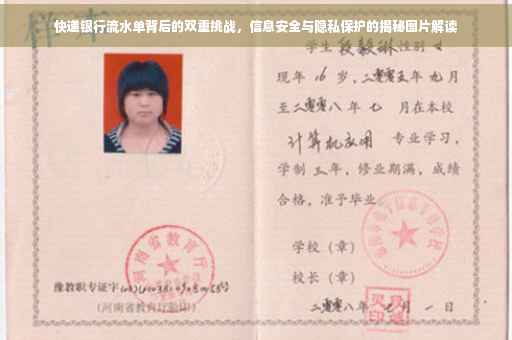 快递银行流水单背后的双重挑战，信息安全与隐私保护的揭秘图片解读
样本
学生段毅琳性别 女
现年 16 岁，二零零五年 九月
至二零零八年 七 月在本校
计算机应用 专业学习，
学制 三 年，修业期满，成绩
合格，准予毕业
学校（章）
校长（章）
河南省教育厅
豫教职专证字
（河南省教育厅验印）
二零零八年 月 一 日